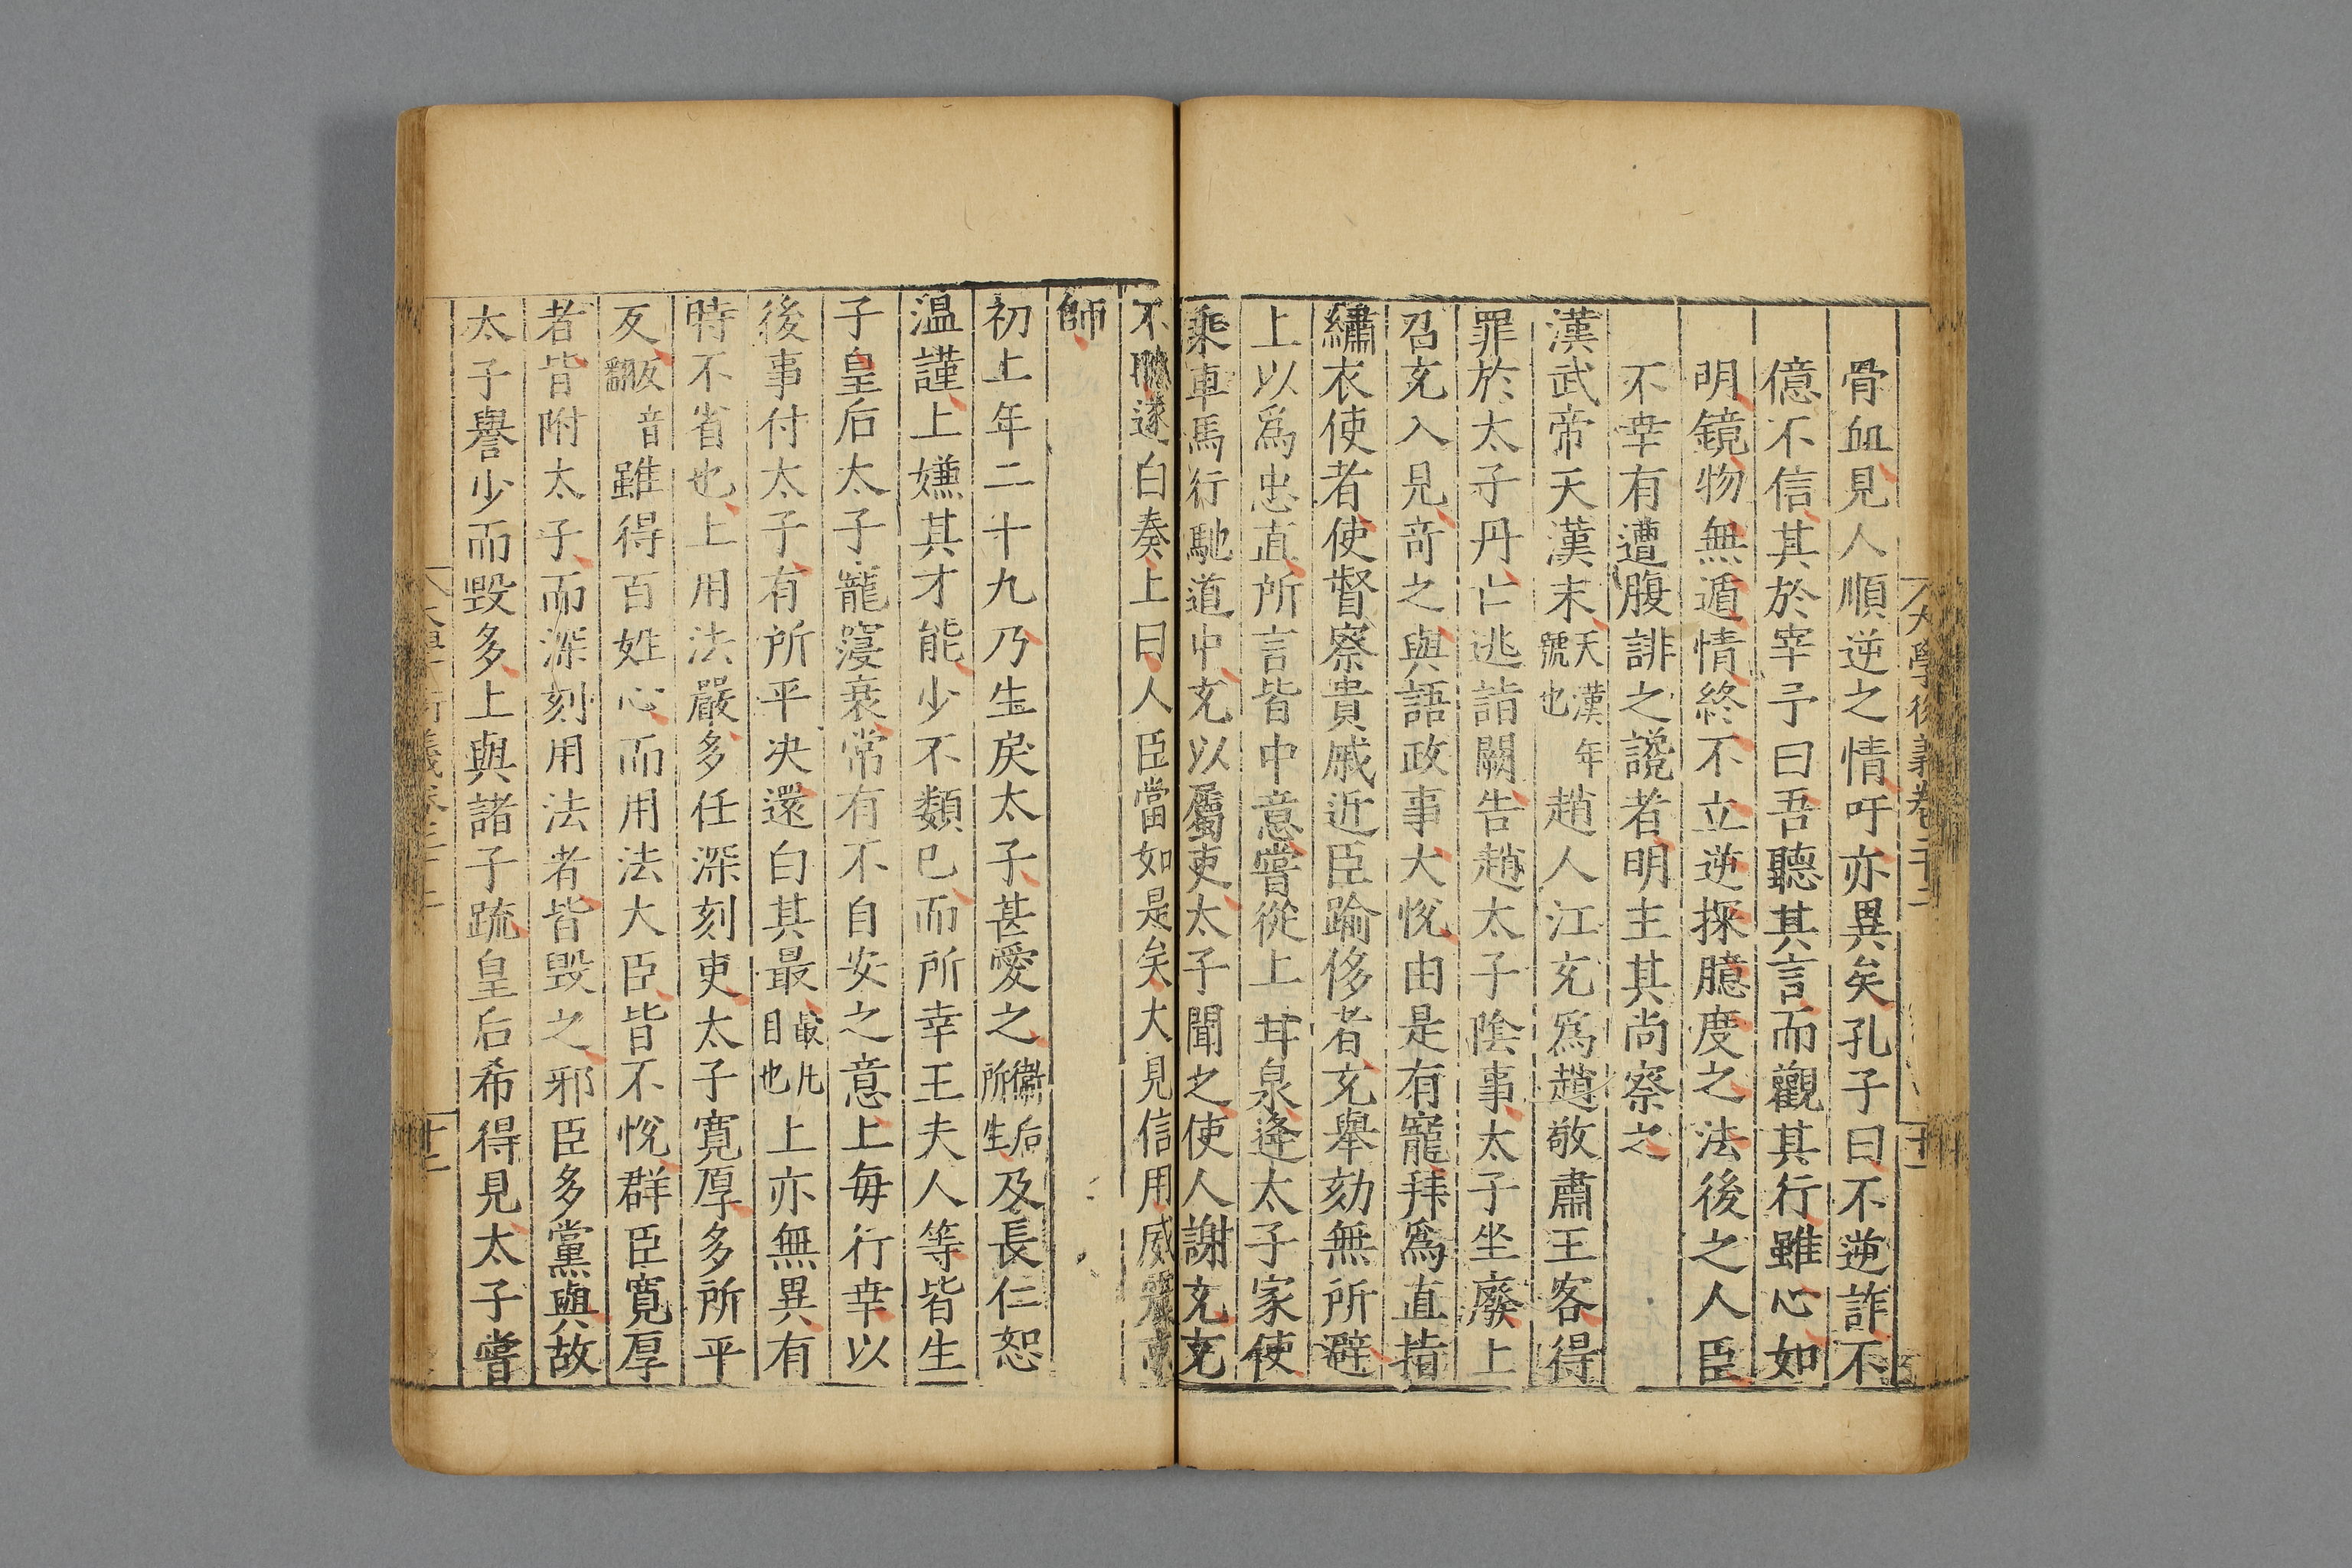 大學衍義卷二十二
十一
骨血見人順逆之情吁亦異矣孔子曰不逆詐不
億不信其於宰予曰吾聽其言而觀其行雖心如
明鏡物無遁情終不立逆探臆度之法後之人臣
不幸有遭腹誹之說者明主其尚察之
漢武帝天漢末天漢年號也趙人江充爲趙敬肅王客得
罪於太子丹亡逃詣闕告趙太子陰事太子坐廢上
召充入見奇之與語政事大悅由是有寵拜爲直指
繡衣使者使督察貴戚近臣踰侈者充舉劾無所避
上以爲忠直所言皆中意嘗從上甘泉逢太子家使
乘車馬行馳道中充以屬吏太子聞之使人謝充充
不聽遂白奏上曰人臣當如是矣大見信用威震京
師
初上年二十九乃生戾太子甚愛之衞后所生及長仁恕
温謹上嫌其才能少不類已而所幸王夫人等皆生
子皇后太子寵寖衰常有不自安之意上每行幸以
後事付太子有所平决還白其最最凡目也上亦無異有
時不省也上用法嚴多任深刻吏太子寬厚多所平
反反音翻雖得百姓心而用法大臣皆不悅群臣寬厚
者皆附太子而深刻用法者皆毀之邪臣多黨與故
太子譽少而毀多上與諸子疏皇后希得見太子嘗
大學衍義卷二十二
十二